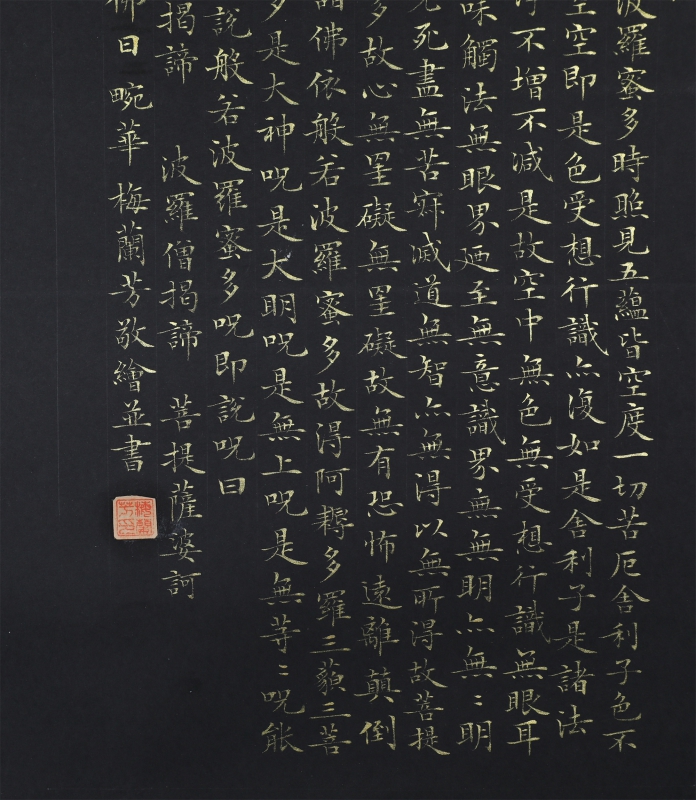 波羅蜜多時照見五蘊皆空度一切苦厄舍利子色不
空空即是色受想行識亦復如是舍利子是諸法
淨不增不减是故空中無色無受想行識無眼耳
味觸法無眼界廼至無意識界無無明亦無〻明
死盡無苦寂滅道無智亦無得以無所得故菩提
多故心無罣礙無罣礙故無有恐怖遠離顛倒
諸佛依般若波羅蜜多故得阿耨多羅三藐三菩
多是大神呪是大明呪是無上呪是無等〻呪能
說般若波羅蜜多呪即說呪曰
揭諦 波羅僧揭諦 菩提薩婆訶
佛日畹華梅蘭芳敬繪並書
梅蘭芳印